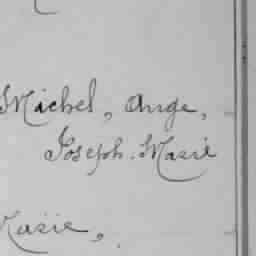 Michel, Ange,
Joseph. Marie
Marie,